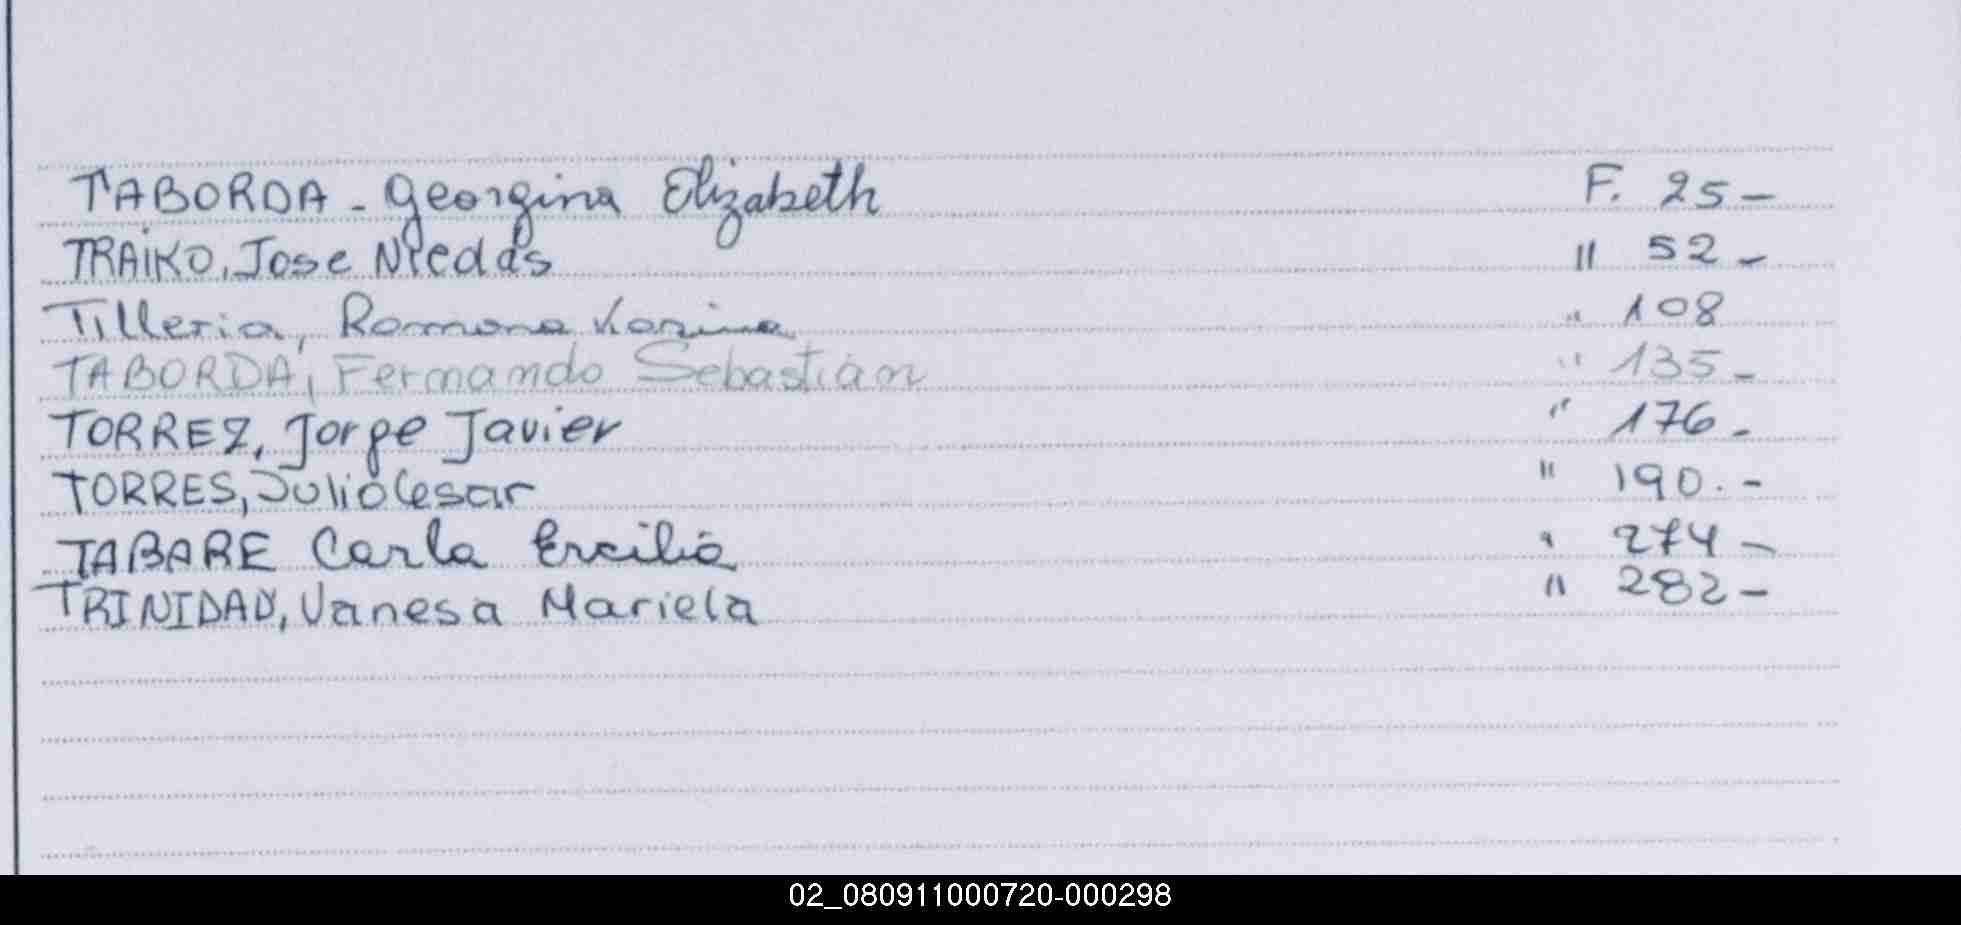 TABORDA - Georgina Elizabeth F. 25 -
TRAiKO, Jose Nicolás " 52 -
Tilleria, Romona Karina " 108
TABORDA, Fernando Sebastián " 135 -
TORREZ, Jorge Javier " 176 -
TORRES, Julio Cesar " 190. -
TABARE Carla Ercilia " 274 -
TRINIDAD, Vanesa Mariela " 282 -
02_080911000720-000298